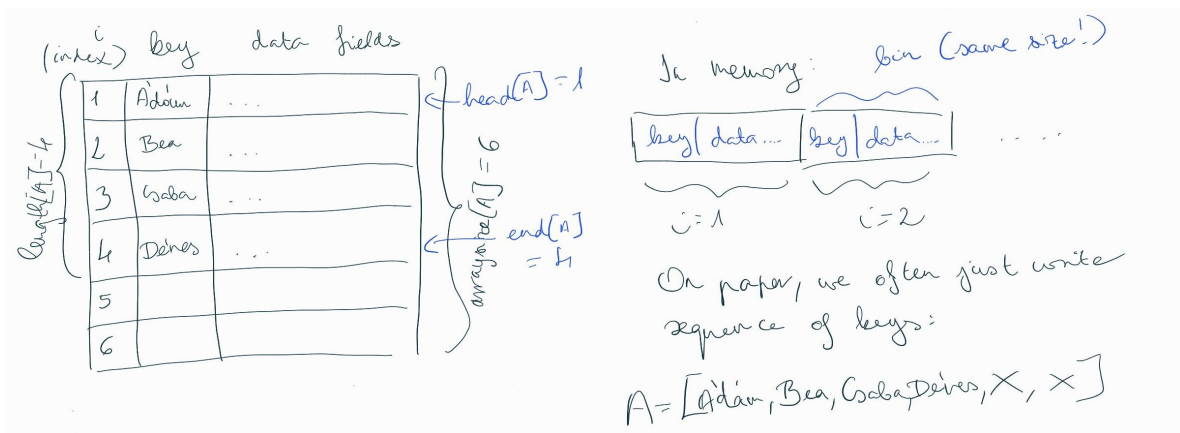 i
(index) key data fields
1 Ádám ...
2 Bea ...
3 Csaba ...
4 Dénes ...
5
6
length[A]=4
arraysize[A]=6
head[A]=1
end[A]
=4
In memory: bin (same size!)
key | data.... key | data.... . . . .
i=1 i=2
On paper, we often just write
sequence of keys:
A=[Ádám, Bea, Csaba, Dénes, X, X]